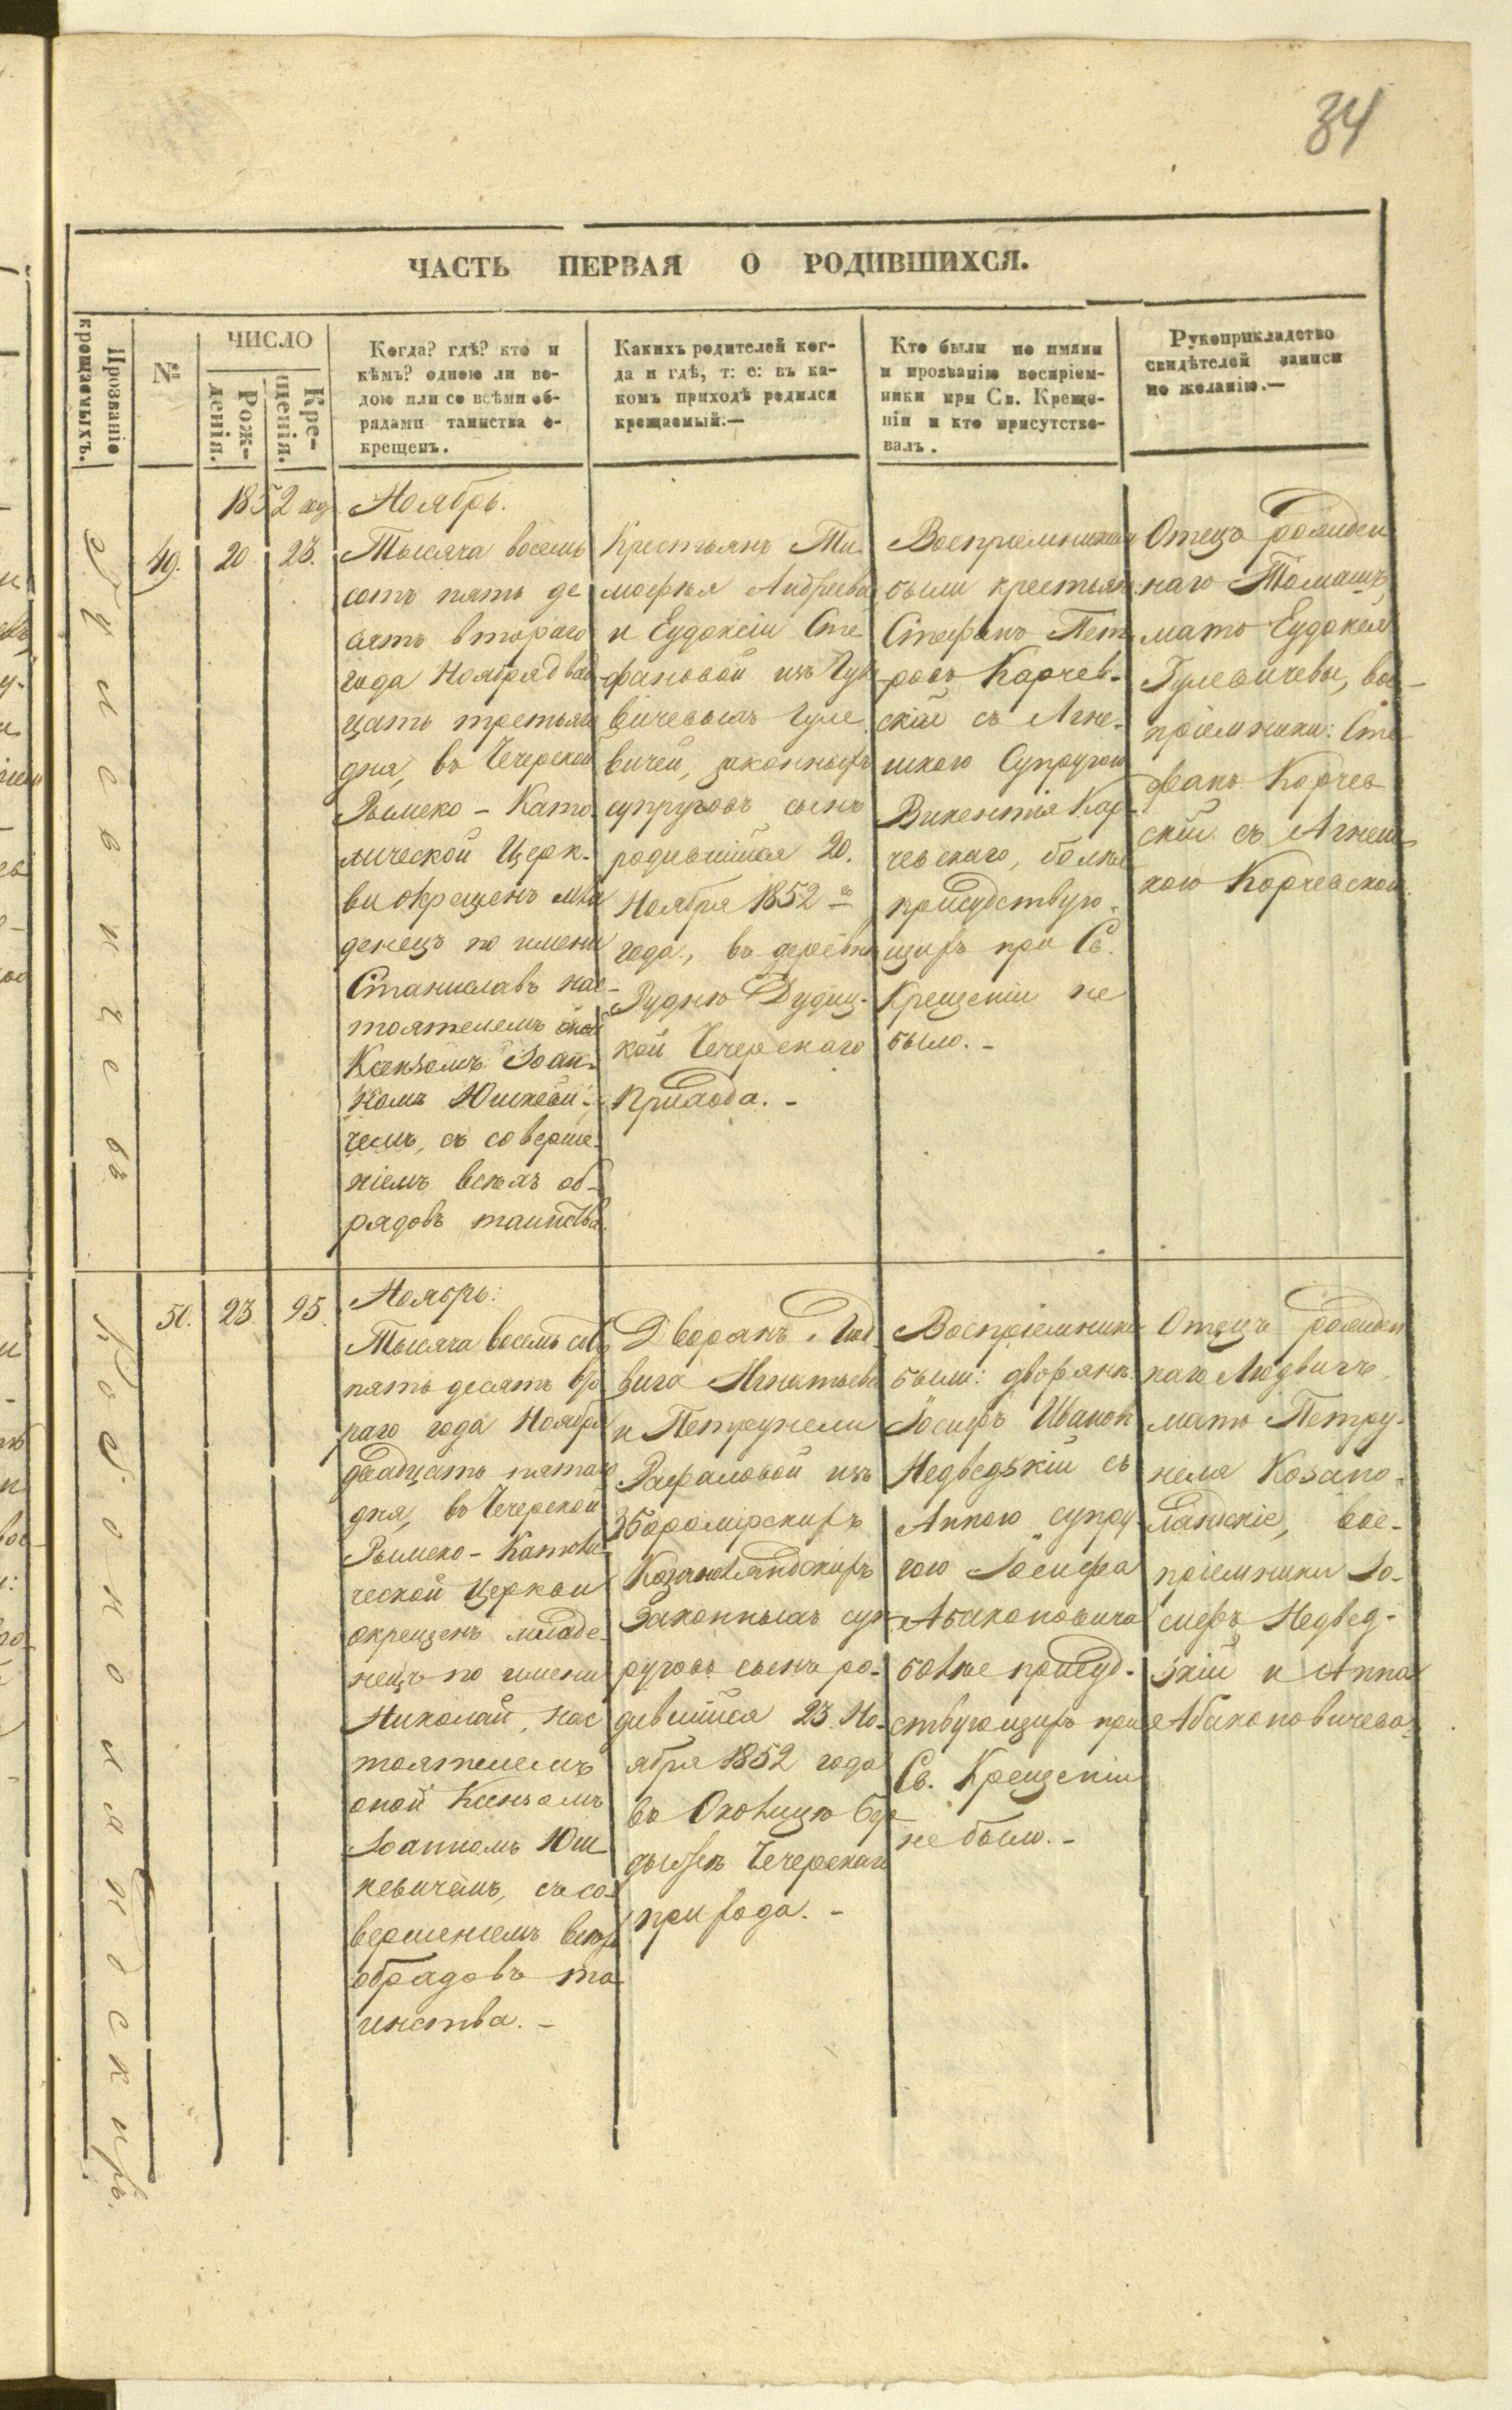 34
ЧАСТЬ ПЕРВАЯ О РОДИВШИХСЯ.
Прозваніе
крещаемыхъ.
№
ЧИСЛО
Рож-
денія.
Кре-
щенія.
Когда? гдѣ? кто и
кѣмъ? одною ли во-
дою или со всѣми об-
рядами таинства о-
крещенъ.
Какихъ родителей ког-
да и гдѣ, т: е: въ ка-
комъ приходѣ родился
крещаемый.—
Кто были по имяни
и прозванію воспріем-
ники при Св. Креще-
ніи и кто присутство-
валъ.
Рукоприкладство
свидѣтелей записи
по желанію.—
1852 год
Гулевичевъ
49.
20
23.
Ноябрь.
Тысяча восемь
сотъ пять де
сятъ втораго
года Ноября двад
цать третьяго
дня, въ Чечерской
Рымско-Като-
лической Церк-
ви окрещенъ мла
денецъ по имени
Станиславъ нас-
тоятелемъ оной
Ксензомъ Іоан-
номъ Юшкеви-
чемъ, съ соверше-
ніемъ всѣхъ об-
рядовъ таинства.
Крестьянъ Ти-
мофѣя Андреева
и Еудоксіи Сте
фановой изъ
вичевыхъ Гуле
вичей, законныхъ
супруговъ сынъ
родившійся 20.
Ноября 1852 го
года, въ деревни
Рудню Дудиц-
кой Чечерскаго
Прихода.-
Воспріемниками
были крестьян:
Стефанъ Пет
ровъ Карчев-
скій съ Агне-
шкою Супругою
Викентія Кар-
чевскаго, болѣе
присудствую-
щихъ при Св.
Крещеніи не
было.-
Отецъ рожден
наго Томашъ,
мать Еудокся
Гулевичевы, вос-
пріемники: Сте
фанъ Корчев
скій съ Агнеш
кою Корчевской.
Козаноляндскихъ.
50.
23.
25.
Ноябрь:
Тысяча восемь сотъ
пять десятъ вто
раго года Ноября
двадцать пятаго
дня, въ Чечерской
Рымско-Католи
ческой Церкви
окрещенъ младе-
нецъ по имени
Николай, нас
тоятелемъ
оной Ксензомъ
Іоанномъ Юш-
кевичемъ, съ со-
вершеніемъ всѣхъ
обрядовъ та-
инства.-
Дворянъ Люд-
вига Игнатьева
и Петрунели
Рафаловой изъ
Зборомірскихъ
Козаноляндскихъ
Законныхъ суп-
руговъ сынъ ро-
дившійся 23 Но-
ября 1852 года
въ Околицю
Чечерскаго
прихода.-
Воспріемники
были: дворянъ:
Іосифъ Ивановъ
Недведзкій съ
Анною супру-
гою Іосифа
Абакановича
болѣе присуд-
ствующихъ при
Св. Крещеніи
не было.-
Отецъ рожден
наго Людвигъ,
мать Петру-
неля Козано-
ляндскіе, вос-
пріемники Іо-
сифъ Недвед-
зкій и Анна
Абакановичева.